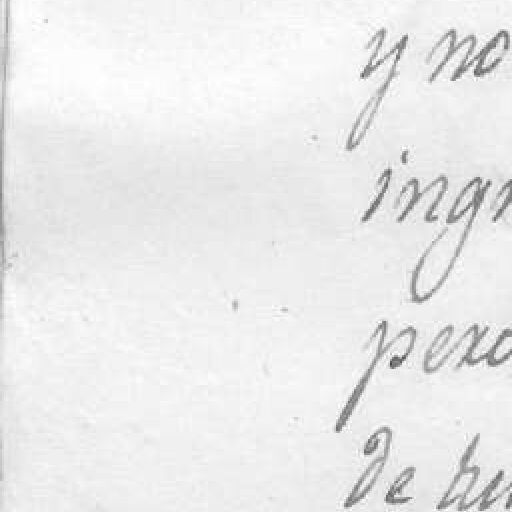 y no
ingr
pero
de